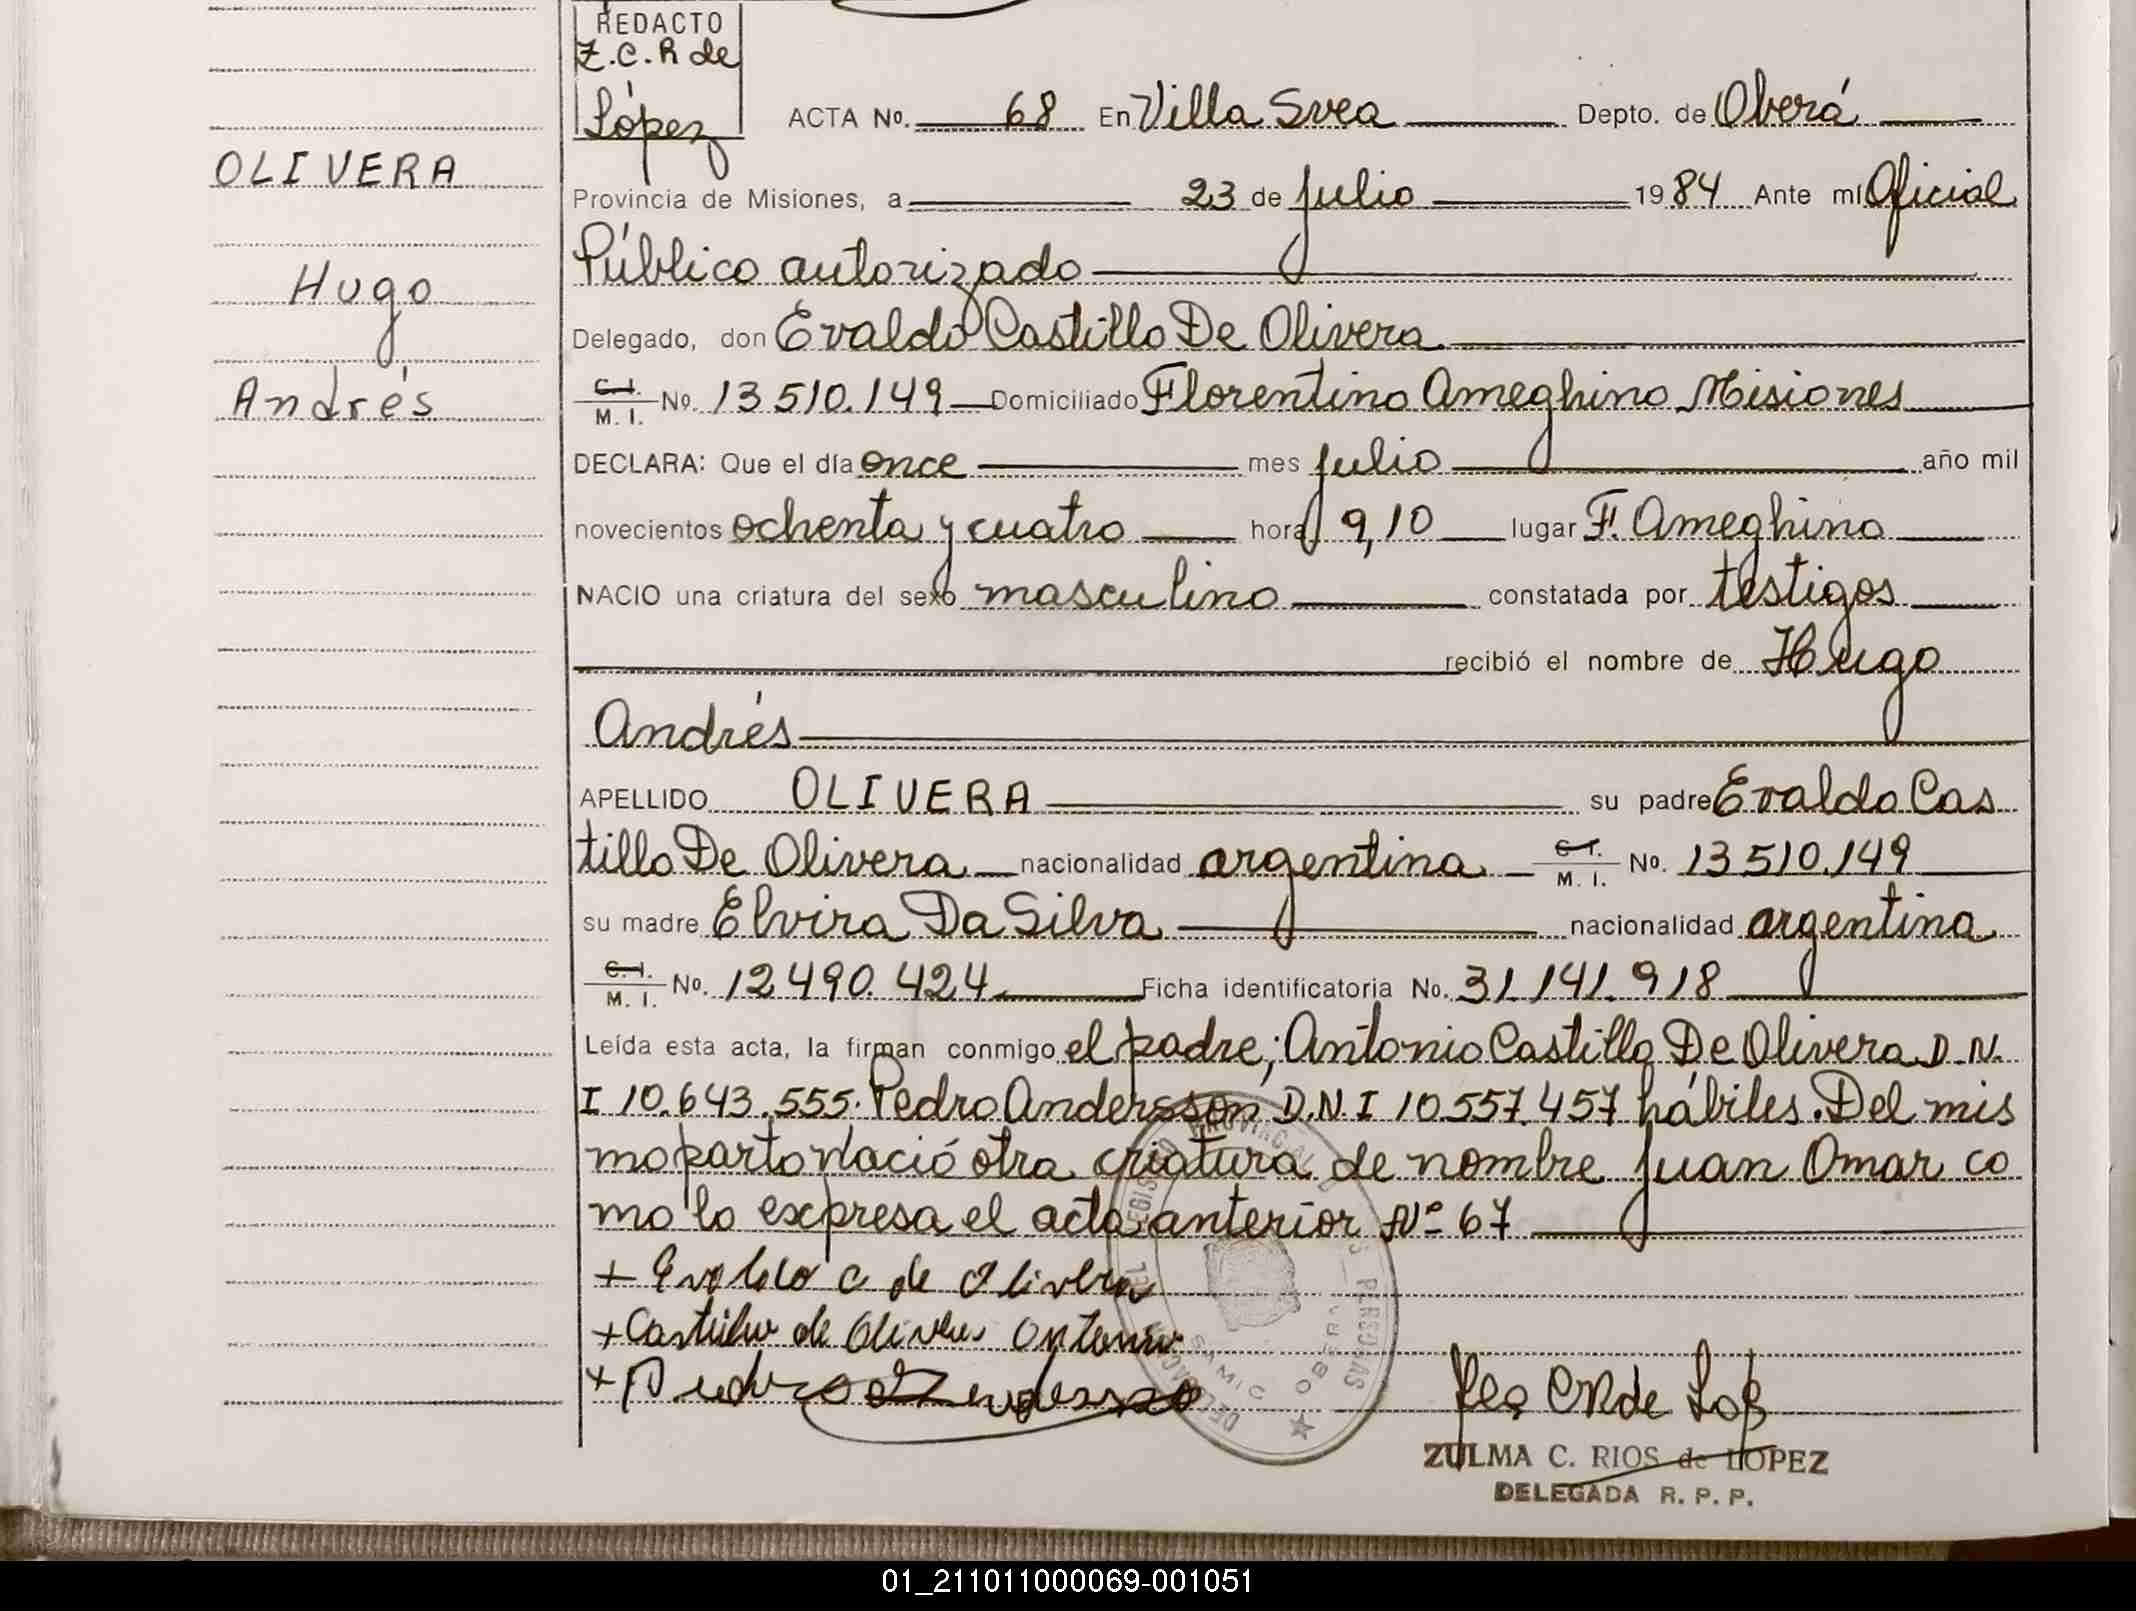 REDACTO
Z.C.R de
López
ACTA No. 68 En Villa Svea Depto. de Oberá
OLIVERA
Provincia de Misiones, a 23 de julio 1984 Ante mí Oficial
Público autorizado
Hugo
Delegado, don Evaldo Castillo De Olivera
Andrés
C. I. / M. I. No. 13510.149 Domiciliado Florentino Ameghino Misiones
DECLARA: Que el día once mes julio año mil
novecientos ochenta y cuatro hora 9,10 lugar F. Ameghino
NACIO una criatura del sexo masculino constatada por testigos
recibió el nombre de Hugo
Andrés
APELLIDO OLIVERA su padre Evaldo Cas
tillo De Olivera nacionalidad argentina C. I. / M. I. No. 13510.149
su madre Elvira Da Silva nacionalidad argentina
C. I. / M. I. No. 12490.424 Ficha identificatoria No. 31.141.918
Leída esta acta, la firman conmigo el padre; Antonio Castillo De Olivera D.N.
I 10.643.555. Pedro Andersson D.N.I 10557.457 hábiles. Del mis
mo parto nació otra criatura de nombre Juan Omar co
mo lo expresa el acta anterior Nº 67
+ Evaldo C de Olivera
+ Castillo de Olivera Antonio
+ Pedro
ZULMA C. RIOS de LOPEZ
DELEGADA R. P. P.
01_211011000069-001051